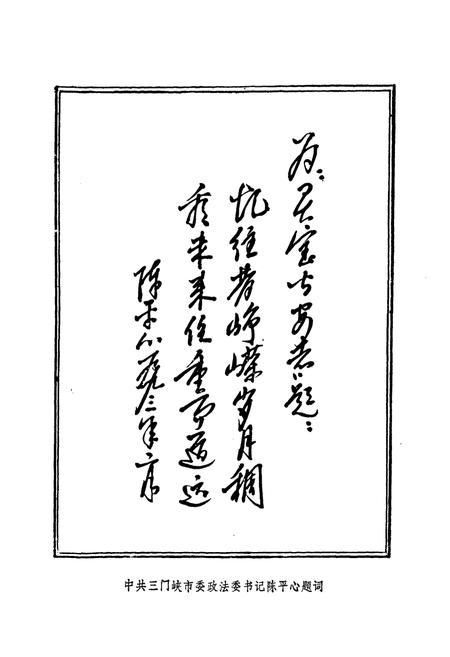 为灵宝公安志题：
忆往昔峥嵘岁月稠
看未来任重而道远
陈平心
中共三门峡市委政法委书记陈平心题词